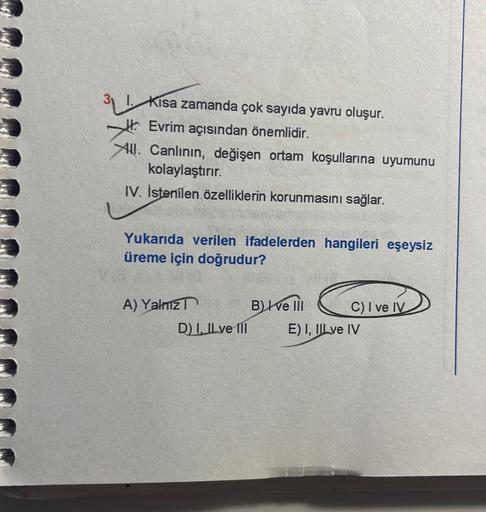 3. I. Kısa zamanda çok sayıda yavru oluşur.
II. Evrim açısından önemlidir.
III. Canlının, değişen ortam koşullarına uyumunu
kolaylaştırır.
IV. İstenilen özelliklerin korunmasını sağlar.
Yukarıda verilen ifadelerden hangileri eşeysiz
üreme için doğrudur?
A) Yalnız I B) I ve III C) I ve IV
D) I, II ve III E) I, III ve IV